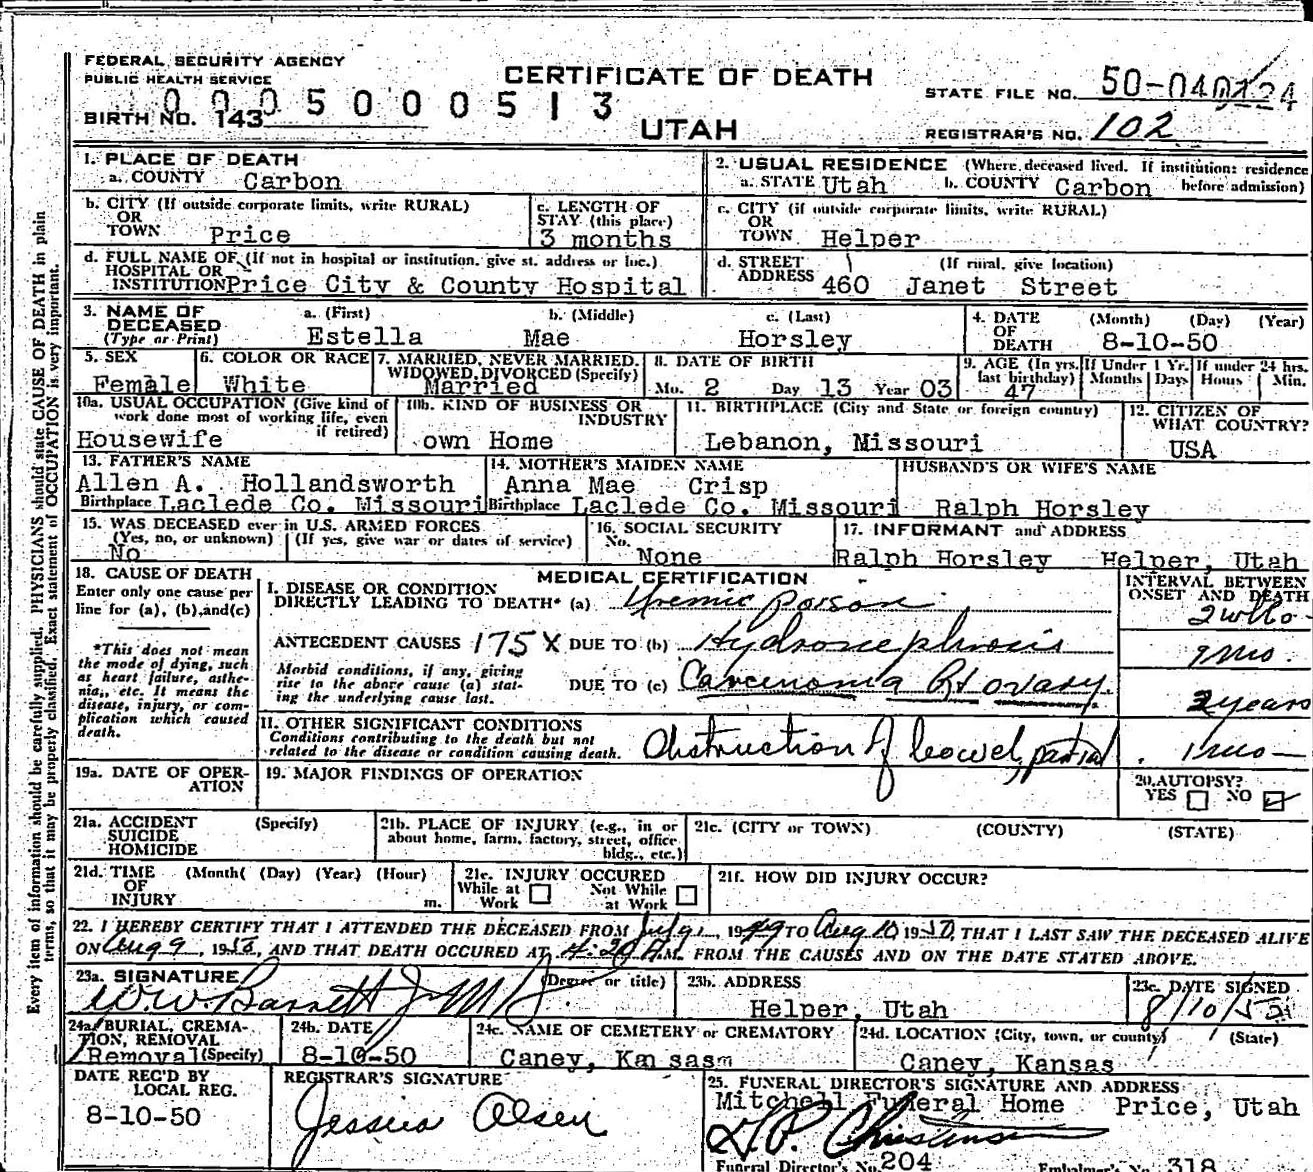 FEDERAL SECURITY AGENCY
PUBLIC HEALTH SERVICE
CERTIFICATE OF DEATH
STATE FILE NO. 50-040124
0005000513
BIRTH NO. 143
UTAH
REGISTRAR'S NO. 102
1. PLACE OF DEATH
a. COUNTY Carbon
2. USUAL RESIDENCE (Where deceased lived. If institution: residence before admission)
a. STATE Utah b. COUNTY Carbon
b. CITY (If outside corporate limits, write RURAL)
OR
TOWN Price
c. LENGTH OF
STAY (this place)
3 months
c. CITY (if outside corporate limits, write RURAL)
OR
TOWN Helper
d. FULL NAME OF (If not in hospital or institution, give st. address or loc.)
HOSPITAL OR
INSTITUTION Price City & County Hospital
d. STREET (If rural, give location)
ADDRESS 460 Janet Street
3. NAME OF
DECEASED
(Type or Print)
a. (First) b. (Middle) c. (Last)
Estella Mae Horsley
4. DATE
OF
DEATH
(Month) (Day) (Year)
8-10-50
5. SEX
Female
6. COLOR OR RACE
White
7. MARRIED, NEVER MARRIED,
WIDOWED, DIVORCED (Specify)
Married
8. DATE OF BIRTH
Mo. 2 Day 13 Year 03
9. AGE (In yrs. last birthday)
47
If Under 1 Yr. Months Days
If under 24 hrs. Hours Min.
10a. USUAL OCCUPATION (Give kind of
work done most of working life, even
if retired)
Housewife
10b. KIND OF BUSINESS OR
INDUSTRY
own Home
11. BIRTHPLACE (City and State or foreign country)
Lebanon, Missouri
12. CITIZEN OF
WHAT COUNTRY?
USA
13. FATHER'S NAME
Allen A. Hollandsworth
Birthplace Laclede Co. Missouri
14. MOTHER'S MAIDEN NAME
Anna Mae Crisp
Birthplace Laclede Co. Missouri
HUSBAND'S OR WIFE'S NAME
Ralph Horsley
15. WAS DECEASED ever in U.S. ARMED FORCES
(Yes, no, or unknown) (If yes, give war or dates of service)
No
16. SOCIAL SECURITY
No. None
17. INFORMANT and ADDRESS
Ralph Horsley Helper, Utah
18. CAUSE OF DEATH
Enter only one cause per
line for (a), (b), and (c)
*This does not mean
the mode of dying, such
as heart failure, asthe-
nia, etc. It means the
disease, injury, or com-
plication which caused
death.
MEDICAL CERTIFICATION
INTERVAL BETWEEN
ONSET AND DEATH
I. DISEASE OR CONDITION
DIRECTLY LEADING TO DEATH* (a) Uremic poison
2 wks
ANTECEDENT CAUSES 175X DUE TO (b) Hydronephrosis
mo.
Morbid conditions, if any, giving
rise to the above cause (a) stat-
ing the underlying cause last.
DUE TO (c) Carcinoma Rt ovary.
2 years
11. OTHER SIGNIFICANT CONDITIONS
Conditions contributing to the death but not
related to the disease or condition causing death.
Obstruction of bowel, partial
1 mo
19a. DATE OF OPER-
ATION
19. MAJOR FINDINGS OF OPERATION
20. AUTOPSY?
YES NO
21a. ACCIDENT (Specify)
SUICIDE
HOMICIDE
21b. PLACE OF INJURY (e.g., in or
about home, farm, factory, street, office
bldg., etc.)
21c. (CITY or TOWN) (COUNTY) (STATE)
21d. TIME (Month( (Day) (Year) (Hour)
OF
INJURY m.
21e. INJURY OCCURED
While at Work Not While at Work
21f. HOW DID INJURY OCCUR?
22. I HEREBY CERTIFY THAT I ATTENDED THE DECEASED FROM July 1, 1949 TO Aug 10, 1950, THAT I LAST SAW THE DECEASED ALIVE
ON Aug 9, 1950, AND THAT DEATH OCCURED AT 4:20 A.M. FROM THE CAUSES AND ON THE DATE STATED ABOVE.
23a. SIGNATURE (Degree or title)
W.W. Barnett Jr MD.
23b. ADDRESS
Helper, Utah
23c. DATE SIGNED
8/10/50
24a. BURIAL, CREMA-
TION, REMOVAL
Removal (Specify)
24b. DATE
8-10-50
24c. NAME OF CEMETERY or CREMATORY
Caney, Kansasm
24d. LOCATION (City, town, or county) (State)
Caney, Kansas
DATE REC'D BY
LOCAL REG.
8-10-50
REGISTRAR'S SIGNATURE
Jessica Olsen
25. FUNERAL DIRECTOR'S SIGNATURE AND ADDRESS
Mitchell Funeral Home Price, Utah
Christensen
Funeral Director's No. 204 Embalmer's No. 318
Every item of information should be carefully supplied. PHYSICIANS should state CAUSE OF DEATH in plain
terms, so that it may be properly classified. Exact statement of OCCUPATION is very important.